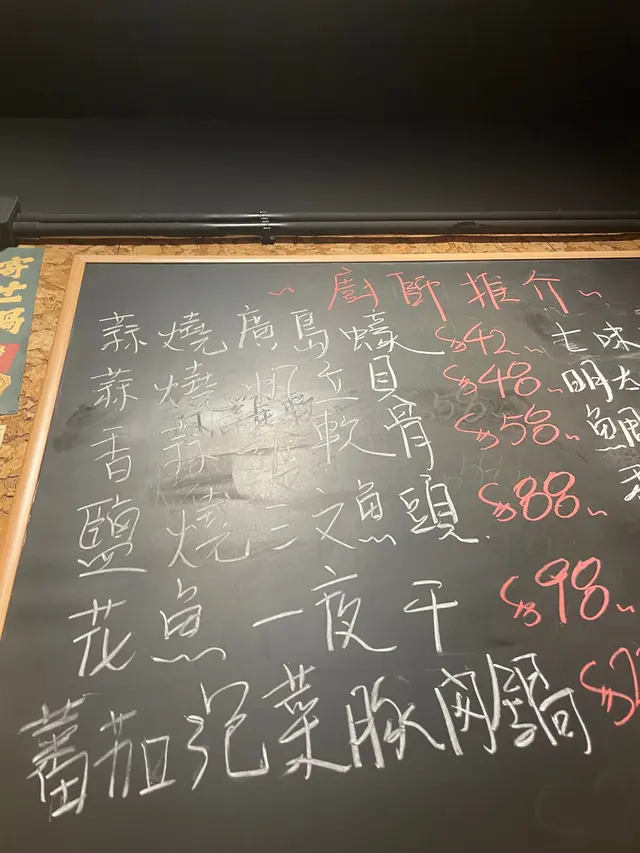 ~ 廚師推介 ~
蒜燒廣島蠔 $42~
蒜燒帆立貝 $48~
香蒜雞軟骨 $58~
鹽燒三文魚頭 $88~
花魚一夜干 $98~
蕃茄泡菜豚肉鍋 $2
七味
明太
鯛